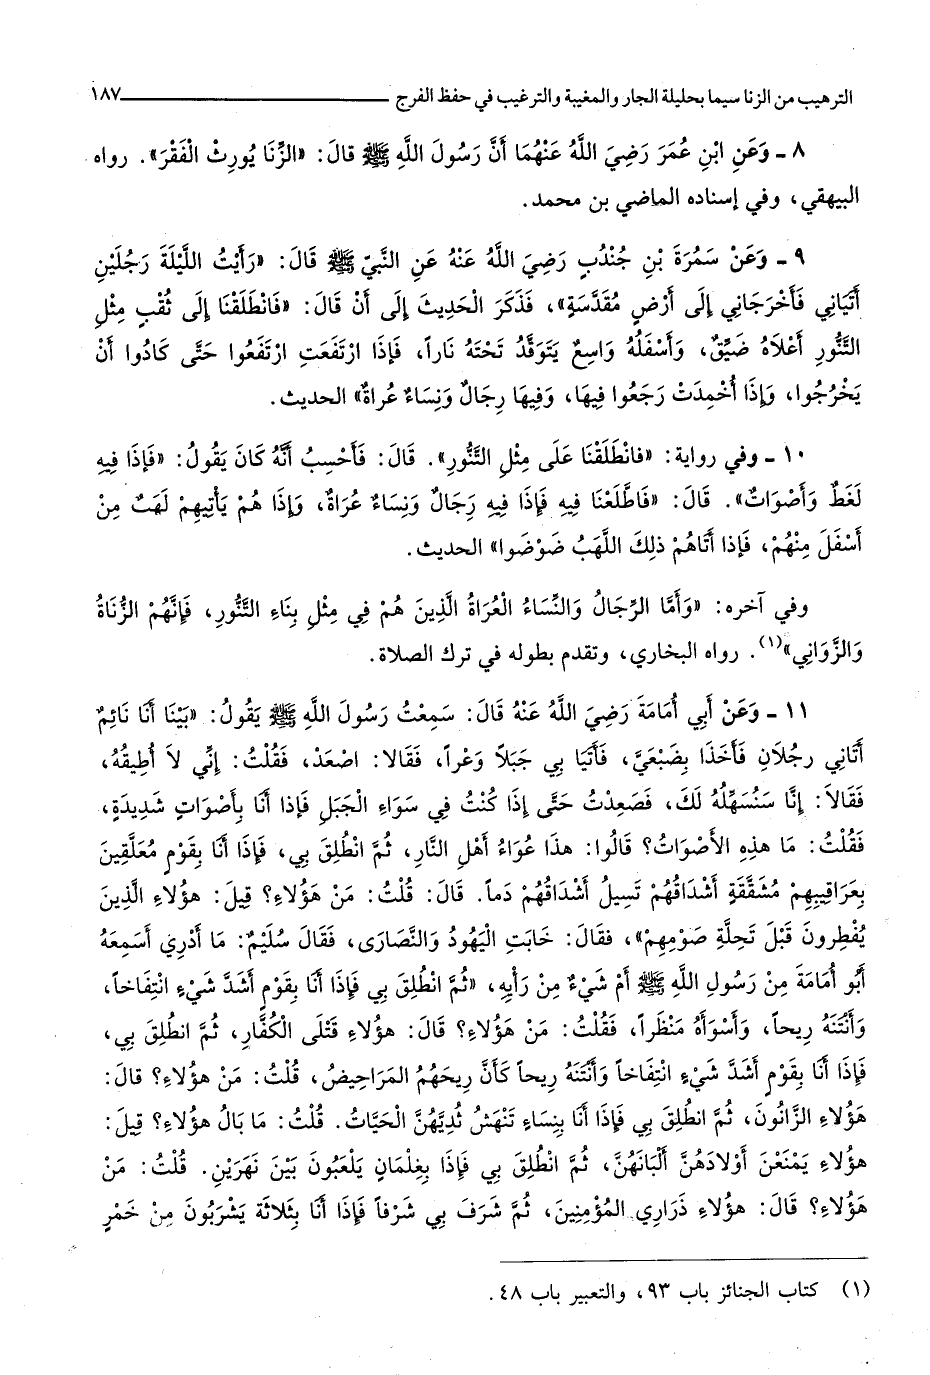 الترهيب من الزنا سيما بحليلة الجار والمغيبة والترغيب في حفظ الفرج ــــــــــــــــــــــــــــ ١٨٧
٨ ـ وَعَنِ ابْنِ عُمَرَ رَضِيَ اللَّهُ عَنْهُمَا أَنَّ رَسُولَ اللَّهِ ﷺ قالَ: «الزِّنَا يُورِثُ الْفَقْرَ». رواه
البيهقي، وفي إسناده الماضي بن محمد.
٩ ـ وَعَنْ سَمُرَةَ بْنِ جُنْدُبٍ رَضِيَ اللَّهُ عَنْهُ عَنِ النَّبِيِّ ﷺ قَالَ: «رَأَيْتُ اللَّيْلَةَ رَجُلَيْنِ
أَتَيَانِي فَأَخْرَجَانِي إِلَى أَرْضٍ مُقَدَّسَةٍ»، فَذَكَرَ الْحَدِيثَ إِلَى أَنْ قَالَ: «فَانْطَلَقْنَا إِلَى ثُقْبٍ مِثْلِ
التَّنُّورِ أَعْلَاهُ ضَيِّقٌ، وَأَسْفَلُهُ وَاسِعٌ يَتَوَقَّدُ تَحْتَهُ نَاراً، فَإِذَا ارْتَفَعَتِ ارْتَفَعُوا حَتَّى كَادُوا أَنْ
يَخْرُجُوا، وَإِذَا أُخْمِدَتْ رَجَعُوا فِيهَا، وَفِيهَا رِجَالٌ وَنِسَاءٌ عُراةٌ» الحديث.
١٠ ـ وفي رواية: «فانْطَلَقْنَا عَلَى مِثْلِ التَّنُّورِ». قَالَ: فَأَحْسِبُ أَنَّهُ كَانَ يَقُولُ: «فَإِذَا فِيهِ
لَغَطٌ وَأَصْوَاتٌ». قَالَ: «فَاطَّلَعْنَا فِيهِ فَإِذَا فِيهِ رِجَالٌ وَنِسَاءٌ عُرَاةٌ، وَإِذَا هُمْ يَأْتِيهِمْ لَهَبٌ مِنْ
أَسْفَلَ مِنْهُمْ، فَإِذا أَتَاهُمْ ذلِكَ اللَّهَبُ ضَوْضَوا» الحديث.
وفي آخره: «وَأَمَّا الرِّجَالُ وَالنِّسَاءُ الْعُرَاةُ الَّذِينَ هُمْ فِي مِثْلِ بِنَاءِ التَّنُّورِ، فَإِنَّهُمْ الزُّنَاةُ
وَالزَّوَانِي»(١). رواه البخاري، وتقدم بطوله في ترك الصلاة.
١١ ـ وَعَنْ أَبِي أُمَامَةَ رَضِيَ اللَّهُ عَنْهُ قَالَ: سَمِعْتُ رَسُولَ اللَّهِ ﷺ يَقُولُ: «بَيْنَا أَنَا نَائِمٌ
أَتَانِي رجُلَانِ فَأَخَذَا بِضَبْعَيَّ، فَأَتَيَا بِي جَبَلاً وَعْراً، فَقَالا: اصْعَدْ، فَقُلْتُ: إِنِّي لاَ أُطِيقُهُ،
فَقَالاَ: إِنَّا سَنُسَهِّلُهُ لَكَ، فَصَعِدْتُ حَتَّى إِذَا كُنْتُ فِي سَوَاءِ الْجَبَلِ فَإِذا أَنَا بِأَصْوَاتٍ شَدِيدَةٍ،
فَقُلْتُ: مَا هذِهِ الأَصْوَاتُ؟ قَالُوا: هذَا عُوَاءُ أَهْلِ النَّارِ، ثُمَّ انْطُلِقَ بِي، فَإِذَا أَنَا بِقَوْمٍ مُعَلَّقِينَ
بِعَرَاقِيبِهِمْ مُشَقَّقَةٍ أَشْدَاقُهُمْ تَسِيلُ أَشْدَاقُهُمْ دَماً. قَالَ: قُلْتُ: مَنْ هَؤُلَاءِ؟ قِيلَ: هؤُلَاءِ الَّذِينَ
يُفْطِرونَ قَبْلَ تَحِلَّةِ صَوْمِهِمْ»، فقَالَ: خَابَتِ الْيَهُودُ وَالنَّصَارَى، فَقَالَ سُلَيْمٌ: مَا أَدْرِي أَسَمِعَهُ
أَبُو أُمَامَةَ مِنْ رَسُولِ اللَّهِ ﷺ أَمْ شَيْءٌ مِنْ رَأْيِهِ، «ثُمَّ انْطُلِقَ بِي فَإِذَا أَنَا بِقَوْمٍ أَشَدَّ شَيْءٍ انْتِفَاخاً،
وَأَنْتَنَهُ رِيحاً، وَأَسْوَأَهُ مَنْظَراً، فَقُلْتُ: مَنْ هَؤُلَاءِ؟ قَالَ: هؤُلَاءِ قَتْلَى الْكُفَّارِ، ثُمَّ انطُلِقَ بِي،
فَإِذَا أَنَا بِقَوْمٍ أَشَدَّ شَيْءٍ انْتِفَاخاً وَأَنْتَنَهُ رِيحاً كَأَنَّ رِيحَهُمُ المَرَاحِيضُ، قُلْتُ: مَنْ هؤُلَاءِ؟ قالَ:
هَؤُلَاءِ الزَّانُونَ، ثُمَّ انطُلِقَ بِي فَإِذَا أَنَا بِنِسَاءٍ تَنْهَشُ ثُدِيَّهُنَّ الْحَيَّاتُ. قُلْتُ: مَا بَالُ هؤُلَاءِ؟ قِيلَ:
هؤُلَاءِ يَمْنَعْنَ أَوْلَادَهُنَّ أَلْبَانَهُنَّ، ثُمَّ انْطُلِقَ بِي فَإِذَا بِغِلْمَانٍ يَلْعَبُونَ بَيْنَ نَهَرَيْنِ. قُلْتُ: مَنْ
هَؤُلَاءِ؟ قَالَ: هؤُلَاءِ ذَرَارِي المُؤْمِنِينَ، ثُمَّ شَرَفَ بِي شَرْفاً فَإِذَا أَنَا بِثَلَاثَة يَشْرَبُونَ مِنْ خَمْرٍ
(١) كتاب الجنائز باب ٩٣، والتعبير باب ٤٨.